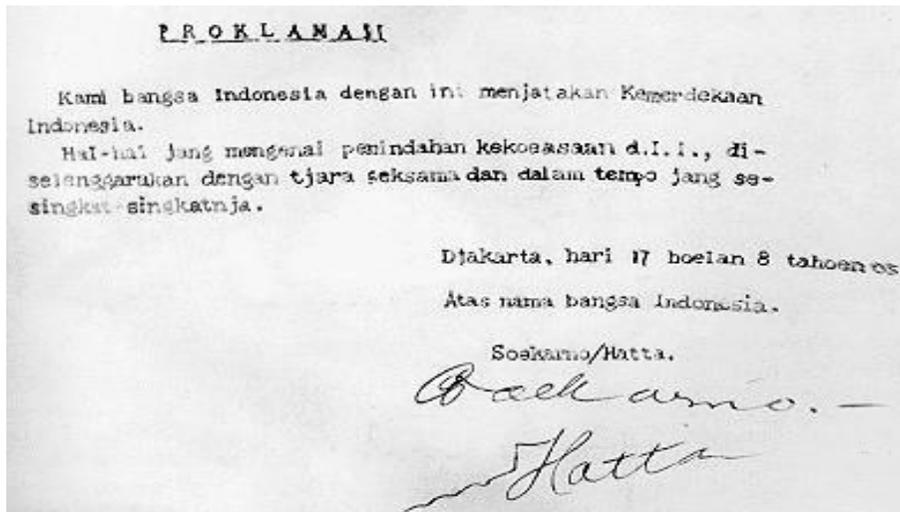 P R O K L A M A S I
Kami bangsa Indonesia dengan ini menjatakan Kemerdekaan
Indonesia.
Hal-hal jang mengenai pemindahan kekoeasaan d.l.l., di-
selenggarakan dengan tjara seksama dan dalam tempo jang se-
singkat-singkatnja.
Djakarta, hari 17 boelan 8 tahoen 05
Atas nama bangsa Indonesia.
Soekarno/Hatta.
Soekarno.
Hatta